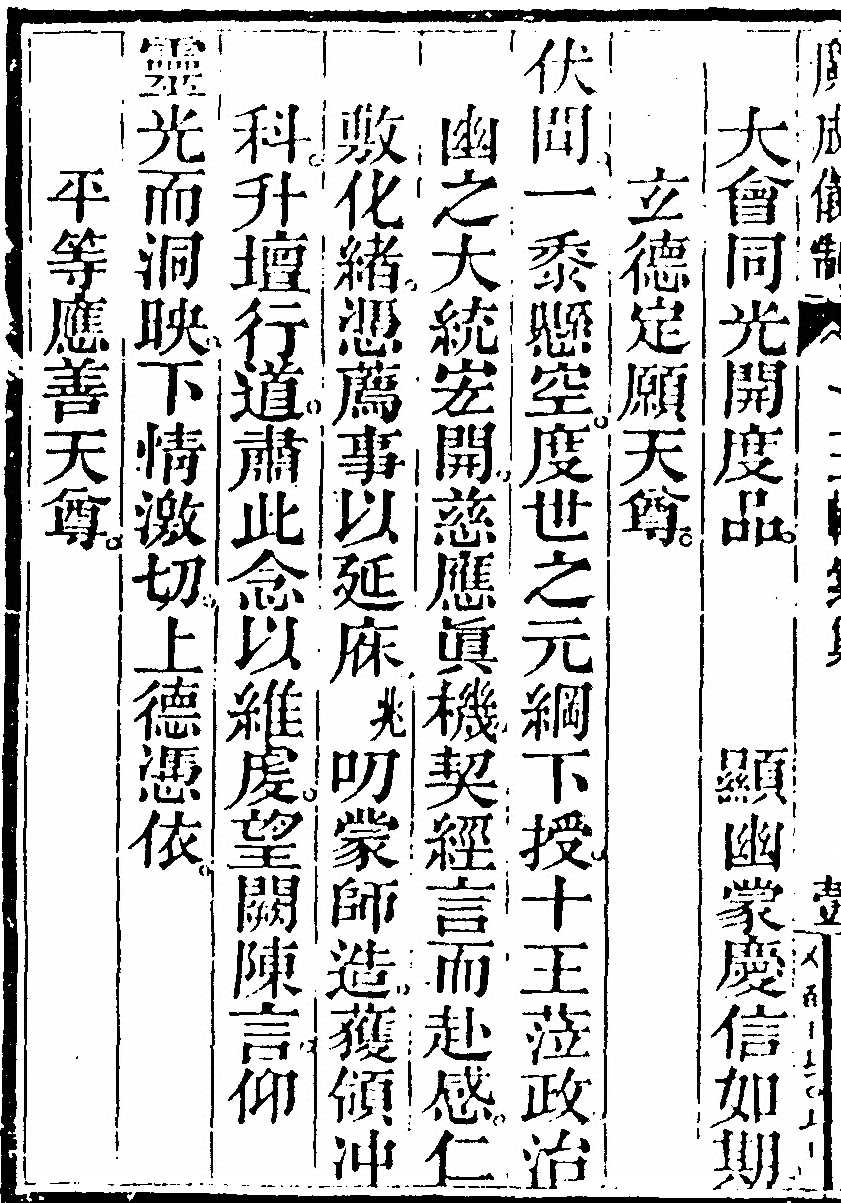 廣成儀制
大會同光開度品　顯幽蒙慶信如期
立德定願天尊。
伏聞一黍懸空。度世之元綱下授。十王蒞政治
幽之大統宏開。慈應眞機。契經言而赴感。仁
敷化緒。憑薦事以延庥。兆叨蒙師造。獲領冲
科。升壇行道。肅此念以維虔。望闕陳言。仰
靈光而洞映。下情激切。上德憑依。
平等應善天尊。